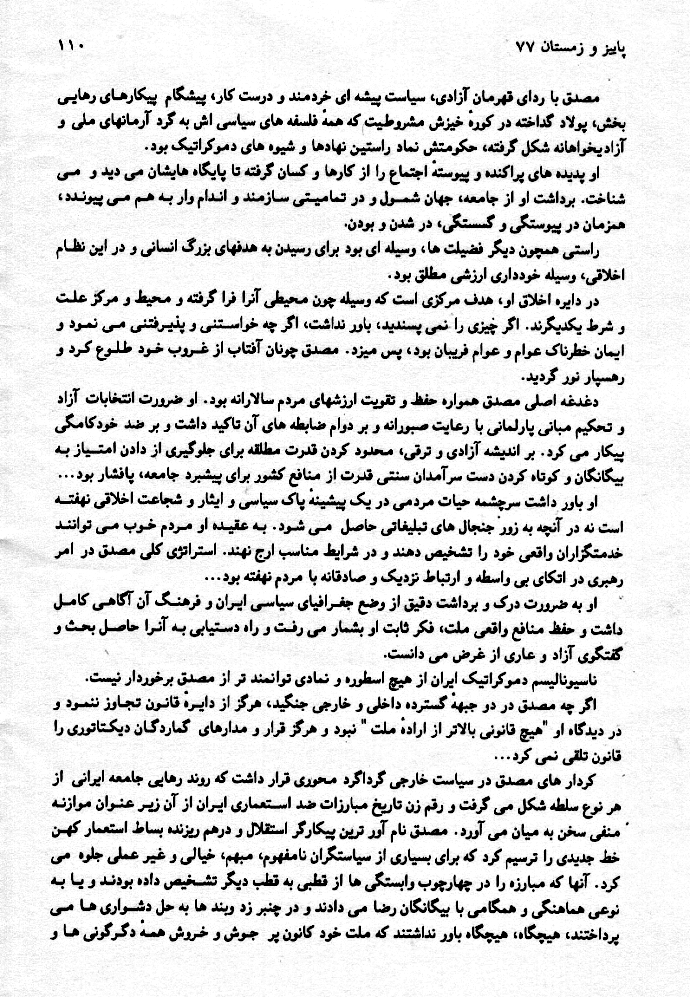 پاییز و زمستان ۷۷
۱۱۰
مصدق با ردای قهرمان آزادی، سیاست پیشه ای خردمند و درست کار، پیشگام پیکارهای رهایی
بخش، پولاد گداخته در کورهٔ خیزش مشروطیت که همهٔ فلسفه های سیاسی اش به گرد آرمانهای ملی و
آزادیخواهانه شکل گرفته، حکومتش نماد راستین نهادها و شیوه های دموکراتیک بود.
او پدیده های پراکنده و پیوستهٔ اجتماع را از کارها و کسان گرفته تا پایگاه هایشان می دید و می
شناخت. برداشت او از جامعه، جهان شمول و در تمامیتی سازمند و اندام وار به هم می پیوندد،
همزمان در پیوستگی و گسستگی، در شدن و بودن.
راستی همچون دیگر فضیلت ها، وسیله ای بود برای رسیدن به هدفهای بزرگ انسانی و در این نظام
اخلاقی، وسیله خودداری ارزشی مطلق بود.
در دایره اخلاق او، هدف مرکزی است که وسیله چون محیطی آنرا فرا گرفته و محیط و مرکز علت
و شرط یکدیگرند. اگر چیزی را نمی پسندید، باور نداشت، اگر چه خواستنی و پذیرفتنی می نمود و
ایمان خطرناک عوام و عوام فریبان بود، پس میزد. مصدق چونان آفتاب از غروب خود طلوع کرد و
رهسپار نور گردید.
دغدغه اصلی مصدق همواره حفظ و تقویت ارزشهای مردم سالارانه بود. او ضرورت انتخابات آزاد
و تحکیم مبانی پارلمانی با رعایت صبورانه و بر دوام ضابطه های آن تاکید داشت و بر ضد خودکامگی
پیکار می کرد. بر اندیشه آزادی و ترقی، محدود کردن قدرت مطلقه برای جلوگیری از دادن امتیاز به
بیگانگان و کوتاه کردن دست سرآمدان سنتی قدرت از منافع کشور برای پیشبرد جامعه، پافشار بود...
او باور داشت سرچشمه حیات مردمی در یک پیشینهٔ پاک سیاسی و ایثار و شجاعت اخلاقی نهفته
است نه در آنچه به زور جنجال های تبلیغاتی حاصل می شود. به عقیده او مردم خوب می توانند
خدمتگزاران واقعی خود را تشخیص دهند و در شرایط مناسب ارج نهند. استراتژی کلی مصدق در امر
رهبری در اتکای بی واسطه و ارتباط نزدیک و صادقانه با مردم نهفته بود...
او به ضرورت درک و برداشت دقیق از وضع جغرافیای سیاسی ایران و فرهنگ آن آگاهی کامل
داشت و حفظ منافع واقعی ملت، فکر ثابت او بشمار می رفت و راه دستیابی به آنرا حاصل بحث و
گفتگوی آزاد و عاری از غرض می دانست.
ناسیونالیسم دموکراتیک ایران از هیچ اسطوره و نمادی توانمند تر از مصدق برخوردار نیست.
اگر چه مصدق در دو جبههٔ گسترده داخلی و خارجی جنگید، هرگز از دایرهٔ قانون تجاوز ننمود و
در دیدگاه او "هیچ قانونی بالاتر از ارادهٔ ملت " نبود و هرگز قرار و مدارهای گماردگان دیکتاتوری را
قانون تلقی نمی کرد...
کردار های مصدق در سیاست خارجی گرداگرد محوری قرار داشت که روند رهایی جامعه ایرانی از
هر نوع سلطه شکل می گرفت و رقم زن تاریخ مبارزات ضد استعماری ایران از آن زیر عنوان موازنه
منفی سخن به میان می آورد. مصدق نام آور ترین پیکارگر استقلال و درهم ریزنده بساط استعمار کهن
خط جدیدی را ترسیم کرد که برای بسیاری از سیاستگران نامفهوم، مبهم، خیالی و غیر عملی جلوه می
کرد. آنها که مبارزه را در چهارچوب وابستگی ها از قطبی به قطب دیگر تشخیص داده بودند و یا به
نوعی هماهنگی و همگامی با بیگانگان رضا می دادند و در چنبر زد وبند ها به حل دشواری ها می
پرداختند، هیچگاه، هیچگاه باور نداشتند که ملت خود کانون پر جوش و خروش همهٔ دگرگونی ها و